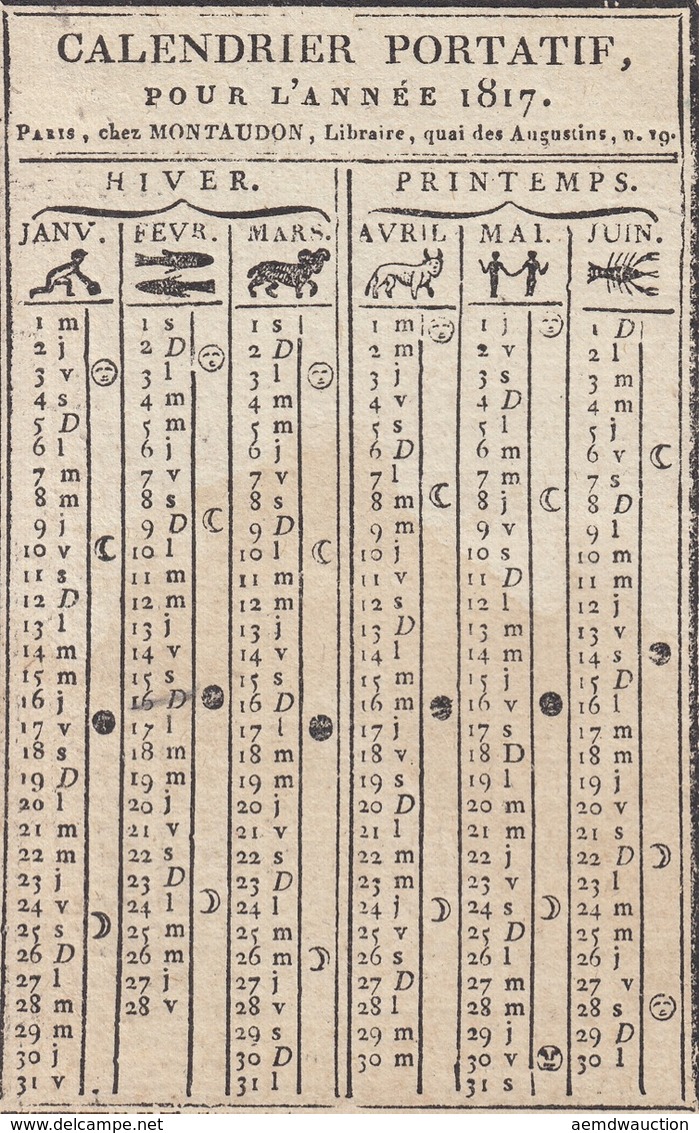 CALENDRIER PORTATIF,
POUR L'ANNÉE 1817.
PARIS, chez MONTAUDON, Libraire, quai des Augustins, n. 19.
HIVER. PRINTEMPS.
JANV. FEVR. MARS. AVRIL MAI. JUIN.
1 m 1 s 1 s 1 m 1 j 1 D
2 j 2 D 2 D 2 m 2 v 2 l
3 v 3 l 3 l 3 j 3 s 3 m
4 s 4 m 4 m 4 v 4 D 4 m
5 D 5 m 5 m 5 s 5 l 5 j
6 l 6 j 6 j 6 D 6 m 6 v
7 m 7 v 7 v 7 l 7 m 7 s
8 m 8 s 8 s 8 m 8 j 8 D
9 j 9 D 9 D 9 m 9 v 9 l
10 v 10 l 10 l 10 j 10 s 10 m
11 s 11 m 11 m 11 v 11 D 11 m
12 D 12 m 12 m 12 s 12 l 12 j
13 l 13 j 13 j 13 D 13 m 13 v
14 m 14 v 14 v 14 l 14 m 14 s
15 m 15 s 15 s 15 m 15 j 15 D
16 j 16 D 16 D 16 m 16 v 16 l
17 v 17 l 17 l 17 j 17 s 17 m
18 s 18 m 18 m 18 v 18 D 18 m
19 D 19 m 19 m 19 s 19 l 19 j
20 l 20 j 20 j 20 D 20 m 20 v
21 m 21 v 21 v 21 l 21 m 21 s
22 m 22 s 22 s 22 m 22 j 22 D
23 j 23 D 23 D 23 m 23 v 23 l
24 v 24 l 24 l 24 j 24 s 24 m
25 s 25 m 25 m 25 v 25 D 25 m
26 D 26 m 26 m 26 s 26 l 26 j
27 l 27 j 27 j 27 D 27 m 27 v
28 m 28 v 28 v 28 l 28 m 28 s
29 m 29 s 29 m 29 j 29 D
30 j 30 D 30 m 30 v 30 l
31 v 31 l 31 s
www.delcampe.net aemdwauction